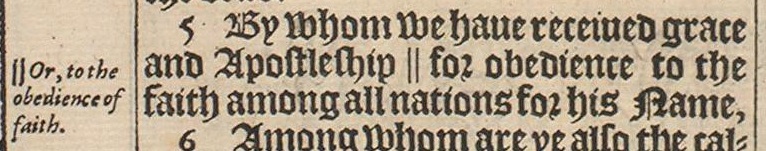 5 By whom we haue receiued grace
and Apoſtleſhip || for obedience to the
faith among all nations for his Name,
6 Among whom are ye alſo the cal-
|| Or, to the
obedience of
faith.